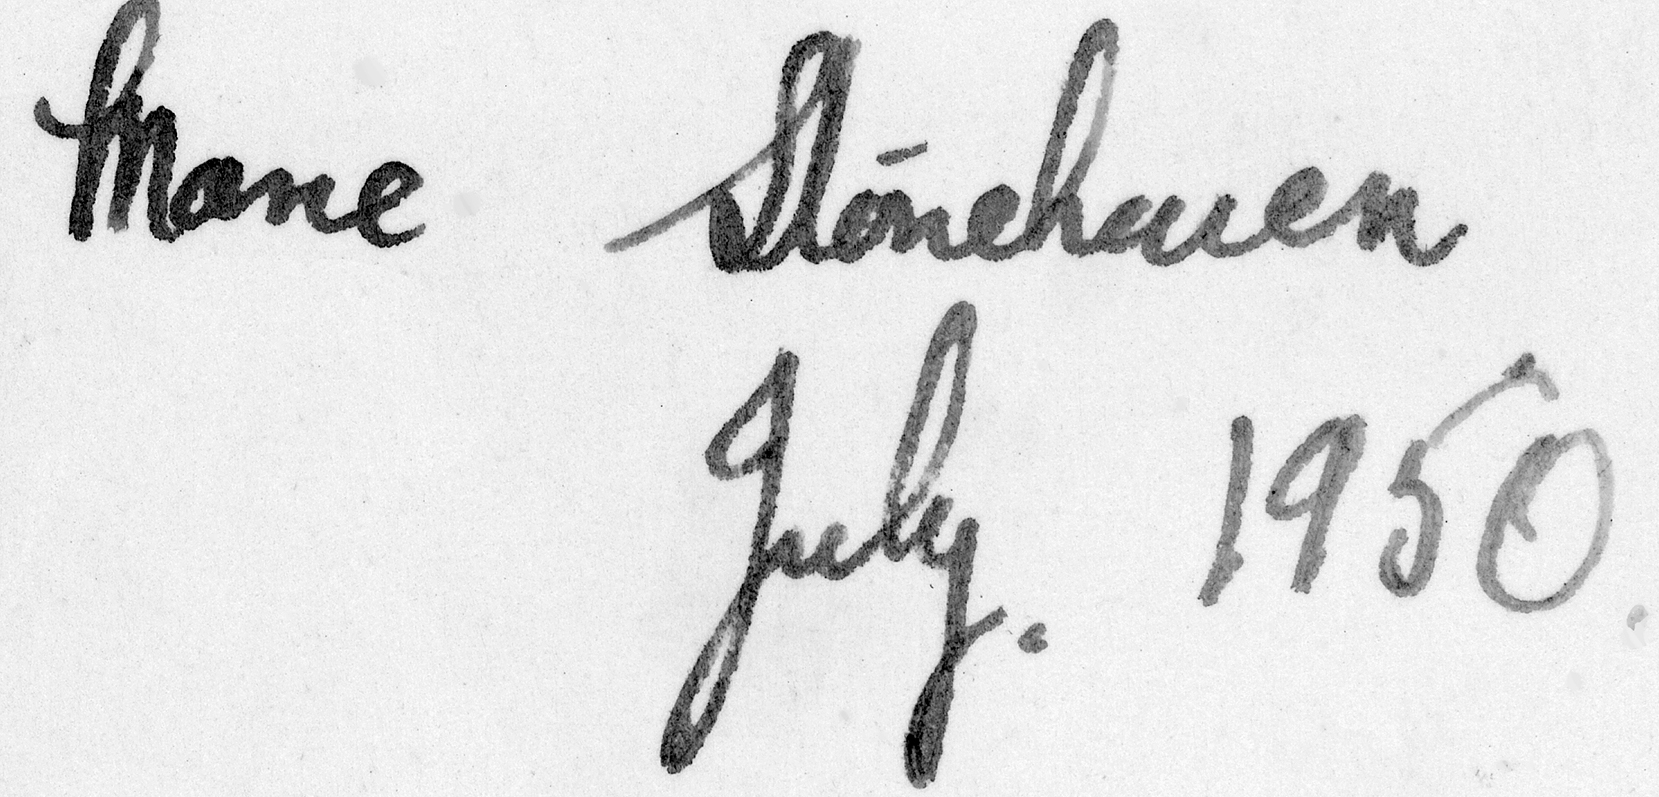 Mane Stonehaven
July. 1950.